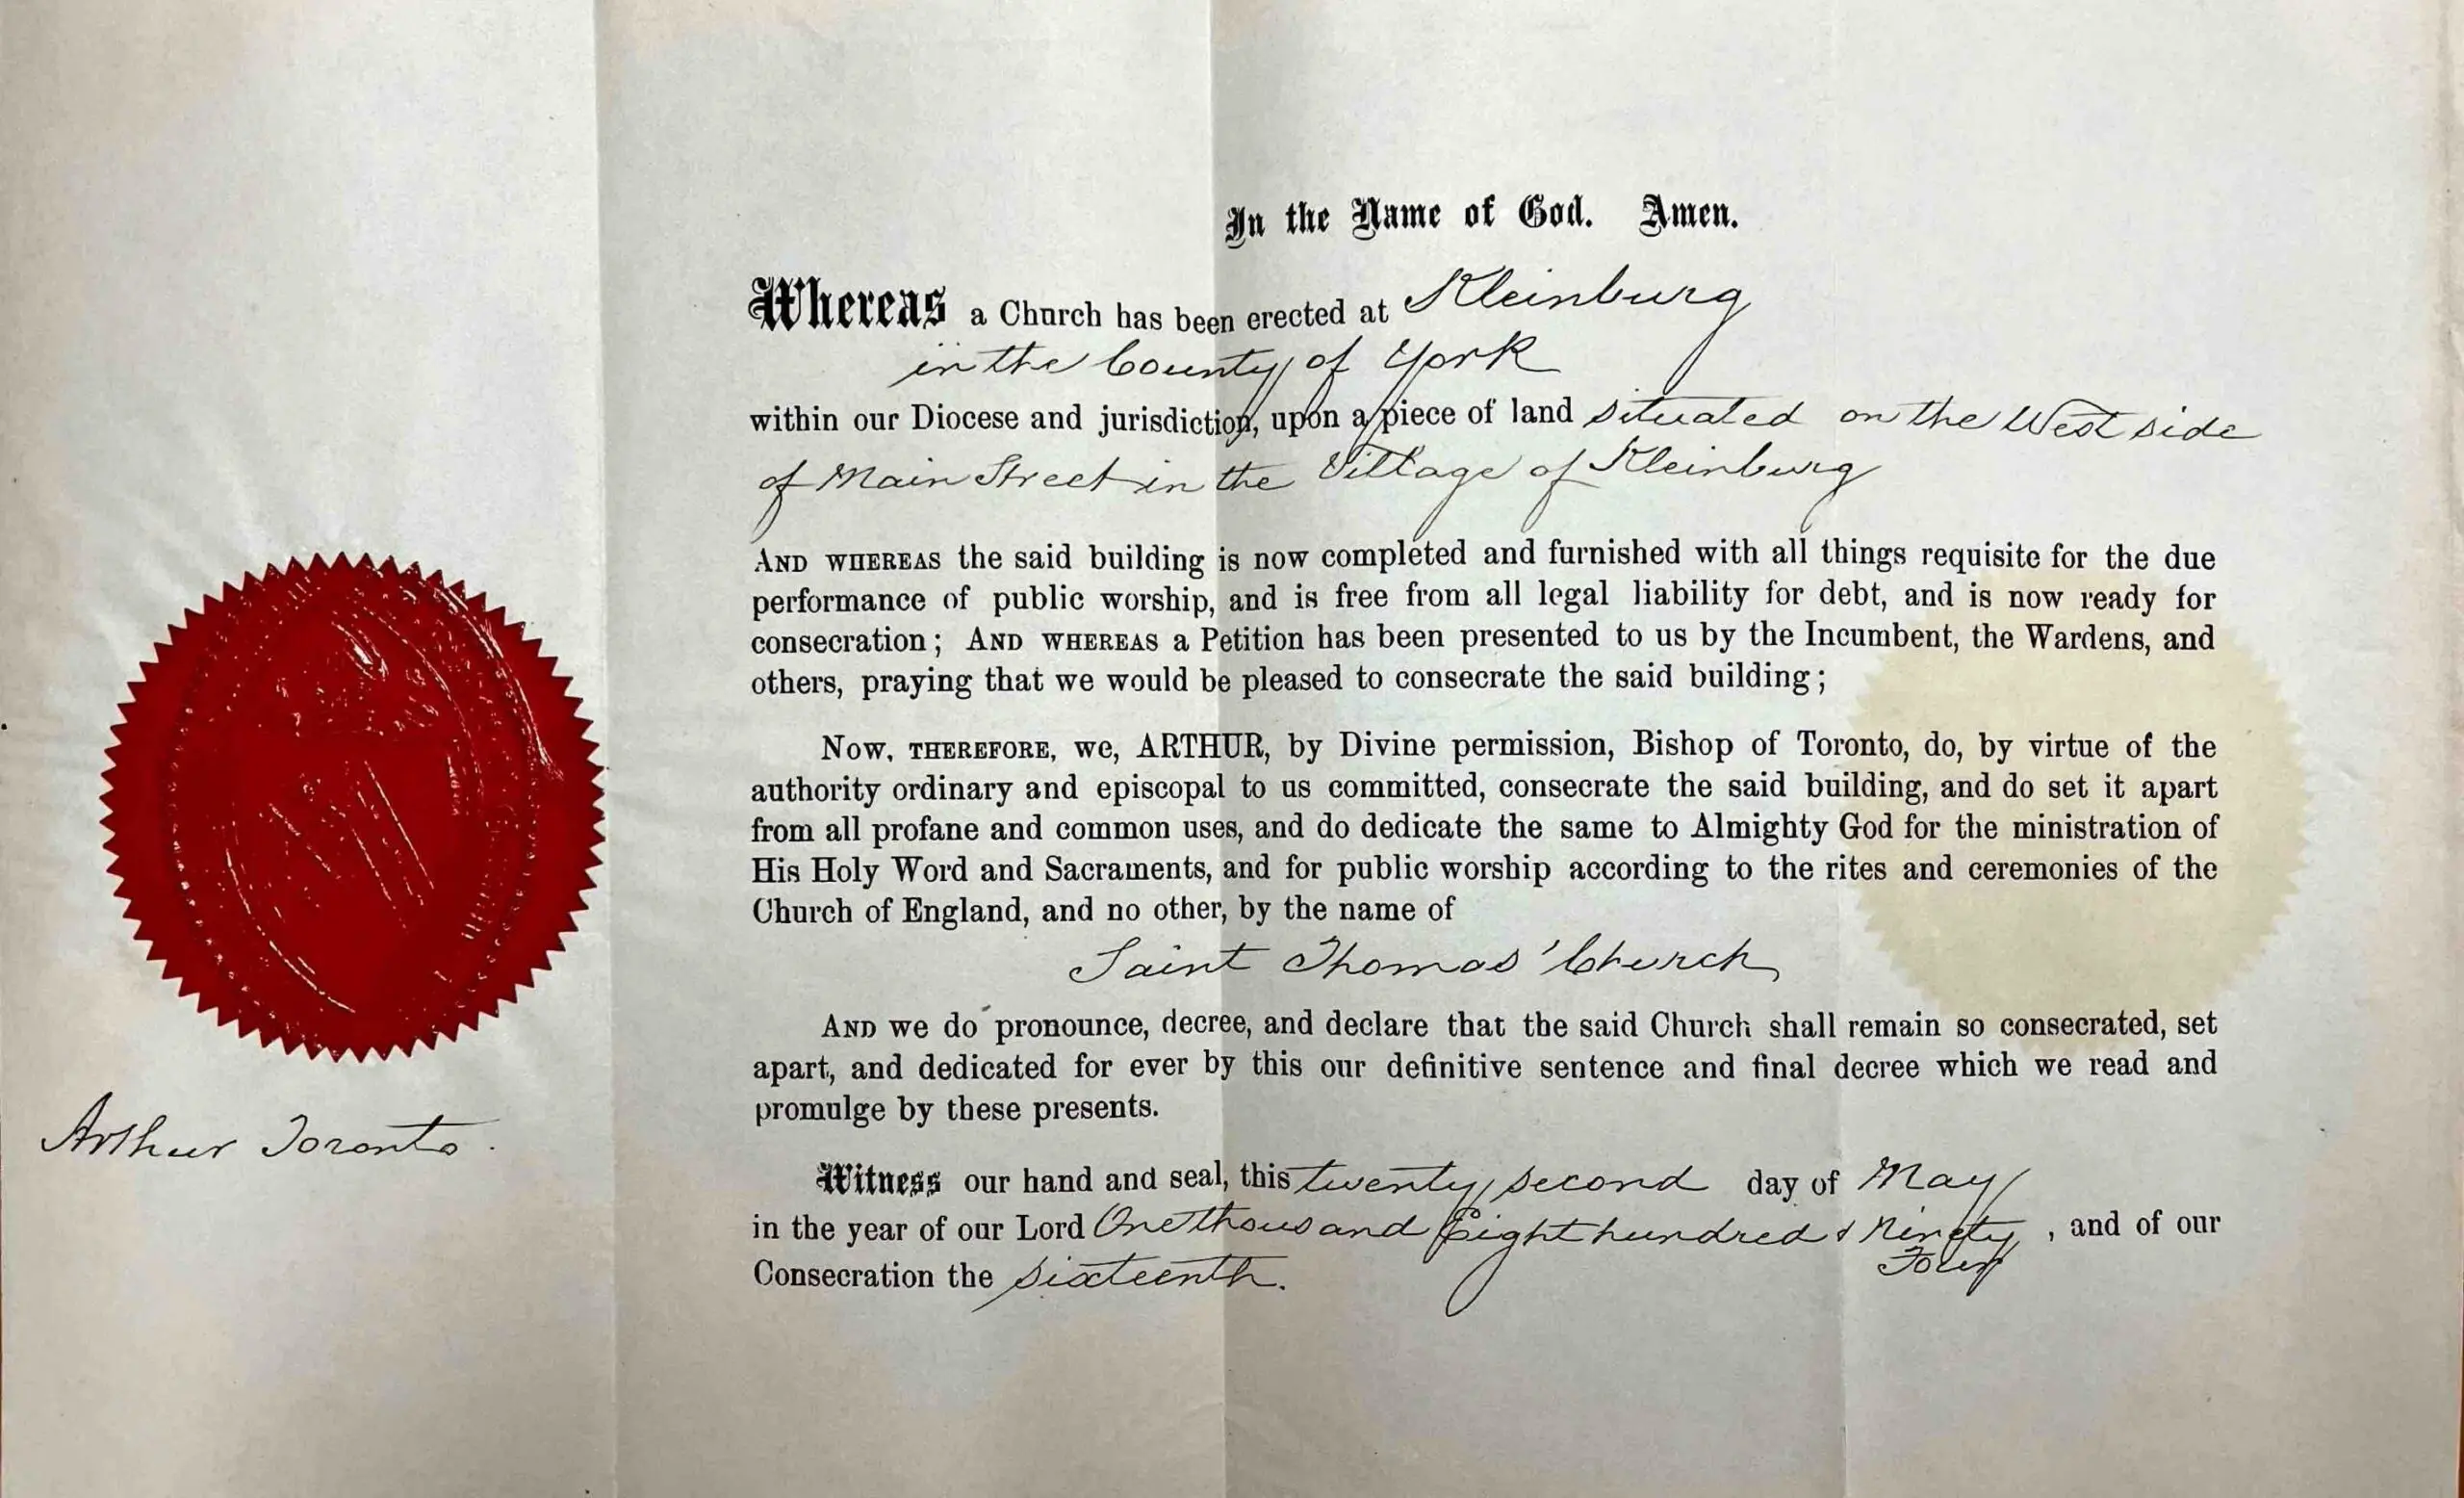 In the Name of God. Amen.
Whereas a Church has been erected at Kleinburg
in the County of York
within our Diocese and jurisdiction, upon a piece of land situated on the West side
of Main Street in the Village of Kleinburg
AND WHEREAS the said building is now completed and furnished with all things requisite for the due
performance of public worship, and is free from all legal liability for debt, and is now ready for
consecration; AND WHEREAS a Petition has been presented to us by the Incumbent, the Wardens, and
others, praying that we would be pleased to consecrate the said building;
NOW, THEREFORE, we, ARTHUR, by Divine permission, Bishop of Toronto, do, by virtue of the
authority ordinary and episcopal to us committed, consecrate the said building, and do set it apart
from all profane and common uses, and do dedicate the same to Almighty God for the ministration of
His Holy Word and Sacraments, and for public worship according to the rites and ceremonies of the
Church of England, and no other, by the name of
Saint Thomas' Church
AND we do pronounce, decree, and declare that the said Church shall remain so consecrated, set
apart, and dedicated for ever by this our definitive sentence and final decree which we read and
promulge by these presents.
Arthur Toronto.
Witness our hand and seal, this twenty second day of May
in the year of our Lord One thousand Eight hundred & Ninety Four, and of our
Consecration the sixteenth.